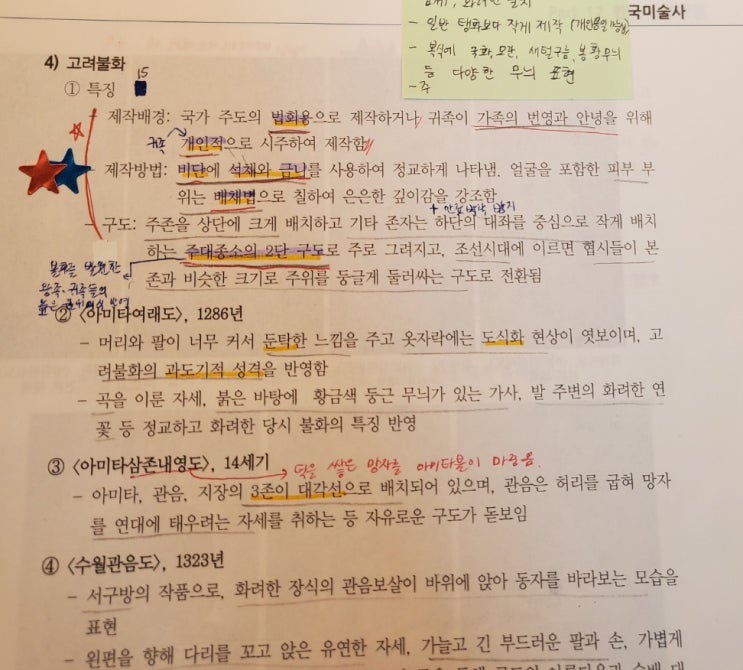 국미술사
- 일반 탱화보다 작게 제작 (개인용일 가능성)
- 복식에 국화, 모란, 새털구름, 봉황무늬
등 다양한 무늬 표현
- 주
4) 고려불화
15
① 특징
- 제작배경: 국가 주도의 법회용으로 제작하거나 귀족이 가족의 번영과 안녕을 위해
귀족
개인적으로 시주하여 제작함
- 제작방법: 비단에 석채와 금니를 사용하여 정교하게 나타냄. 얼굴을 포함한 피부 부
위는 배채법으로 칠하여 은은한 깊이감을 강조함
- 구도: 주존을 상단에 크게 배치하고 기타 존자는 하단의 대좌를 중심으로 작게 배치
하는 주대종소의 2단 구도로 주로 그려지고, 조선시대에 이르면 협시들이 본
존과 비슷한 크기로 주위를 둥글게 둘러싸는 구도로 전환됨
불화를 발원한
왕족, 귀족들의
② 〈아미타여래도〉, 1286년
- 머리와 팔이 너무 커서 둔탁한 느낌을 주고 옷자락에는 도식화 현상이 엿보이며, 고
려불화의 과도기적 성격을 반영함
- 곡을 이룬 자세, 붉은 바탕에 황금색 둥근 무늬가 있는 가사, 발 주변의 화려한 연
꽃 등 정교하고 화려한 당시 불화의 특징 반영
③ 〈아미타삼존내영도〉, 14세기
덕을 쌓은 망자를 아미타불이 마중옴.
- 아미타, 관음, 지장의 3존이 대각선으로 배치되어 있으며, 관음은 허리를 굽혀 망자
를 연대에 태우려는 자세를 취하는 등 자유로운 구도가 돋보임
④ 〈수월관음도〉, 1323년
- 서구방의 작품으로, 화려한 장식의 관음보살이 바위에 앉아 동자를 바라보는 모습을
표현
- 왼편을 향해 다리를 꼬고 앉은 유연한 자세, 가늘고 긴 부드러운 팔과 손, 가볍게